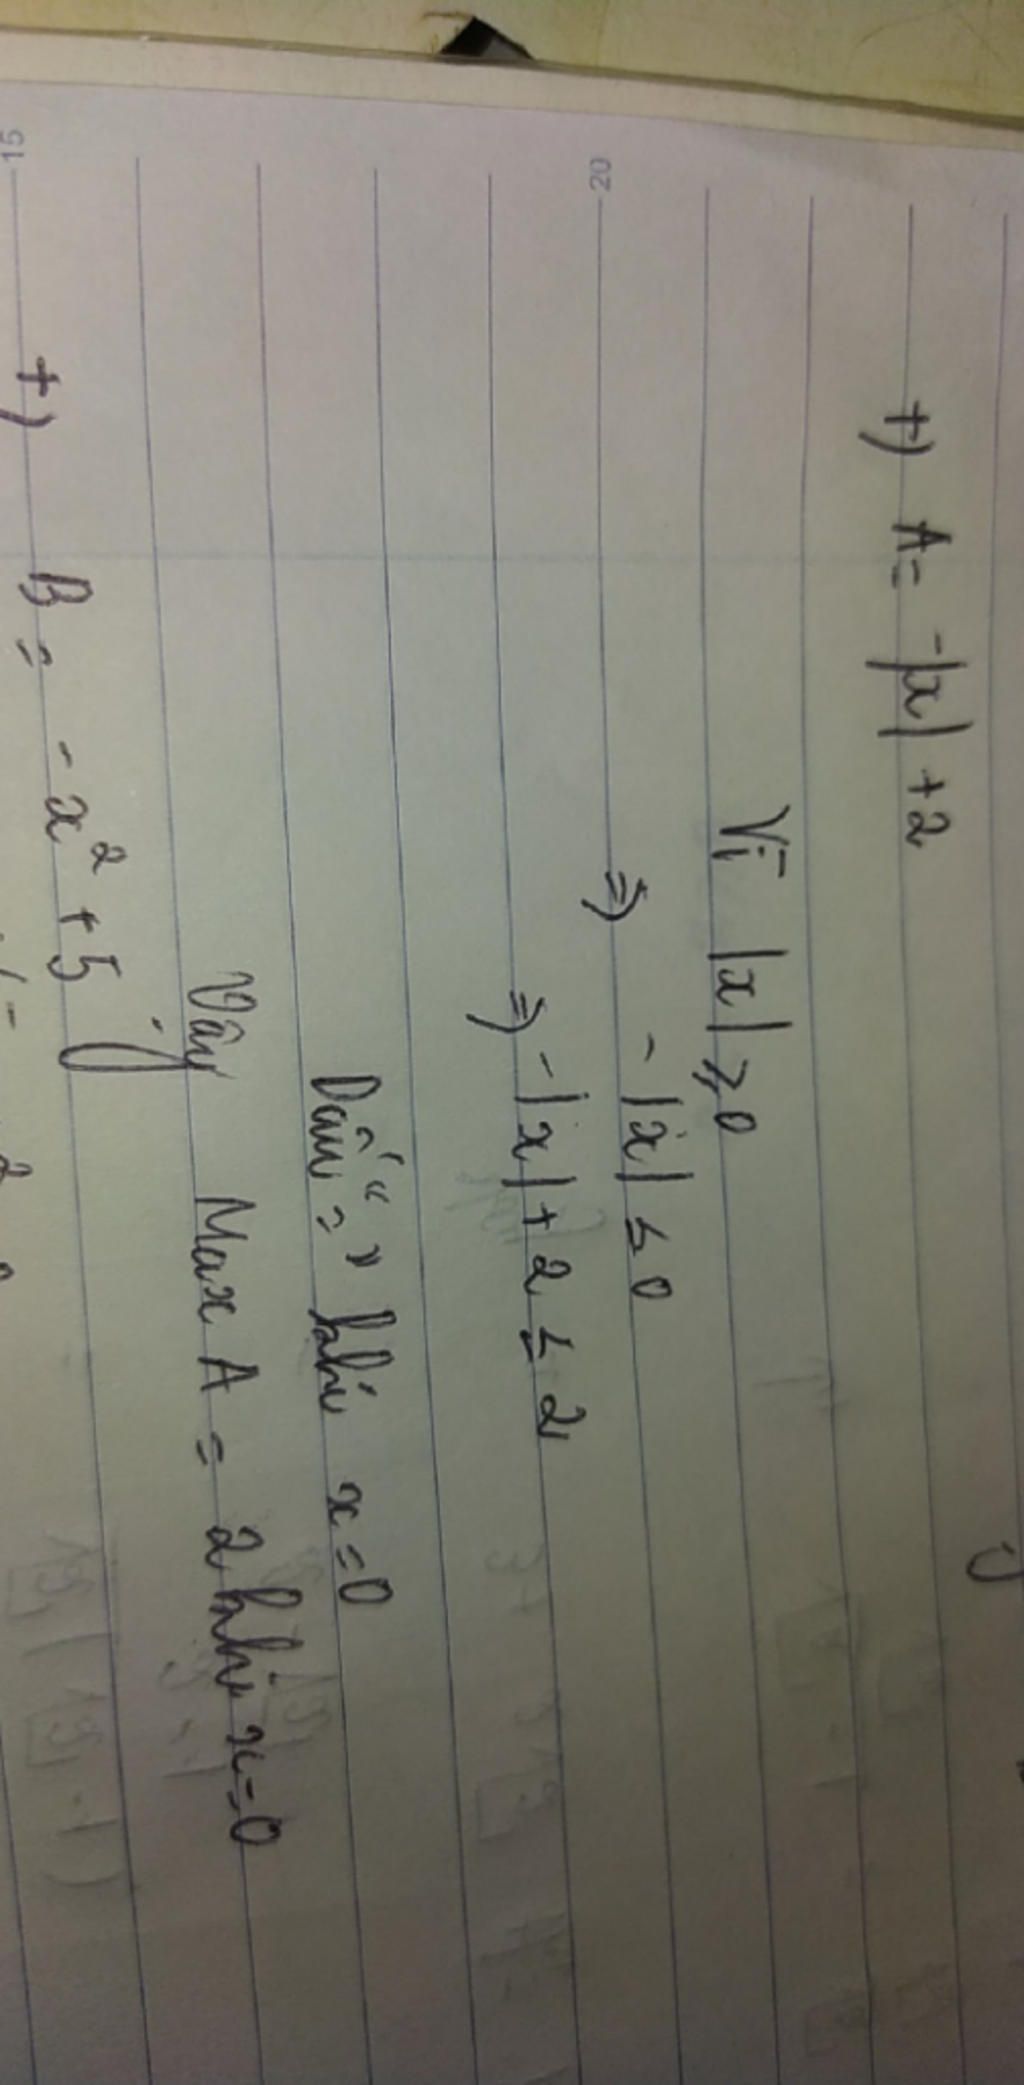 +) A = -|x| + 2
Vì |x| ≥ 0
20
=) - |x| ≤ 0
=) -|x| + 2 ≤ 2
Dấu "=" khi x = 0
Vậy Max A = 2 khi x = 0
15
+) B = - x² + 5